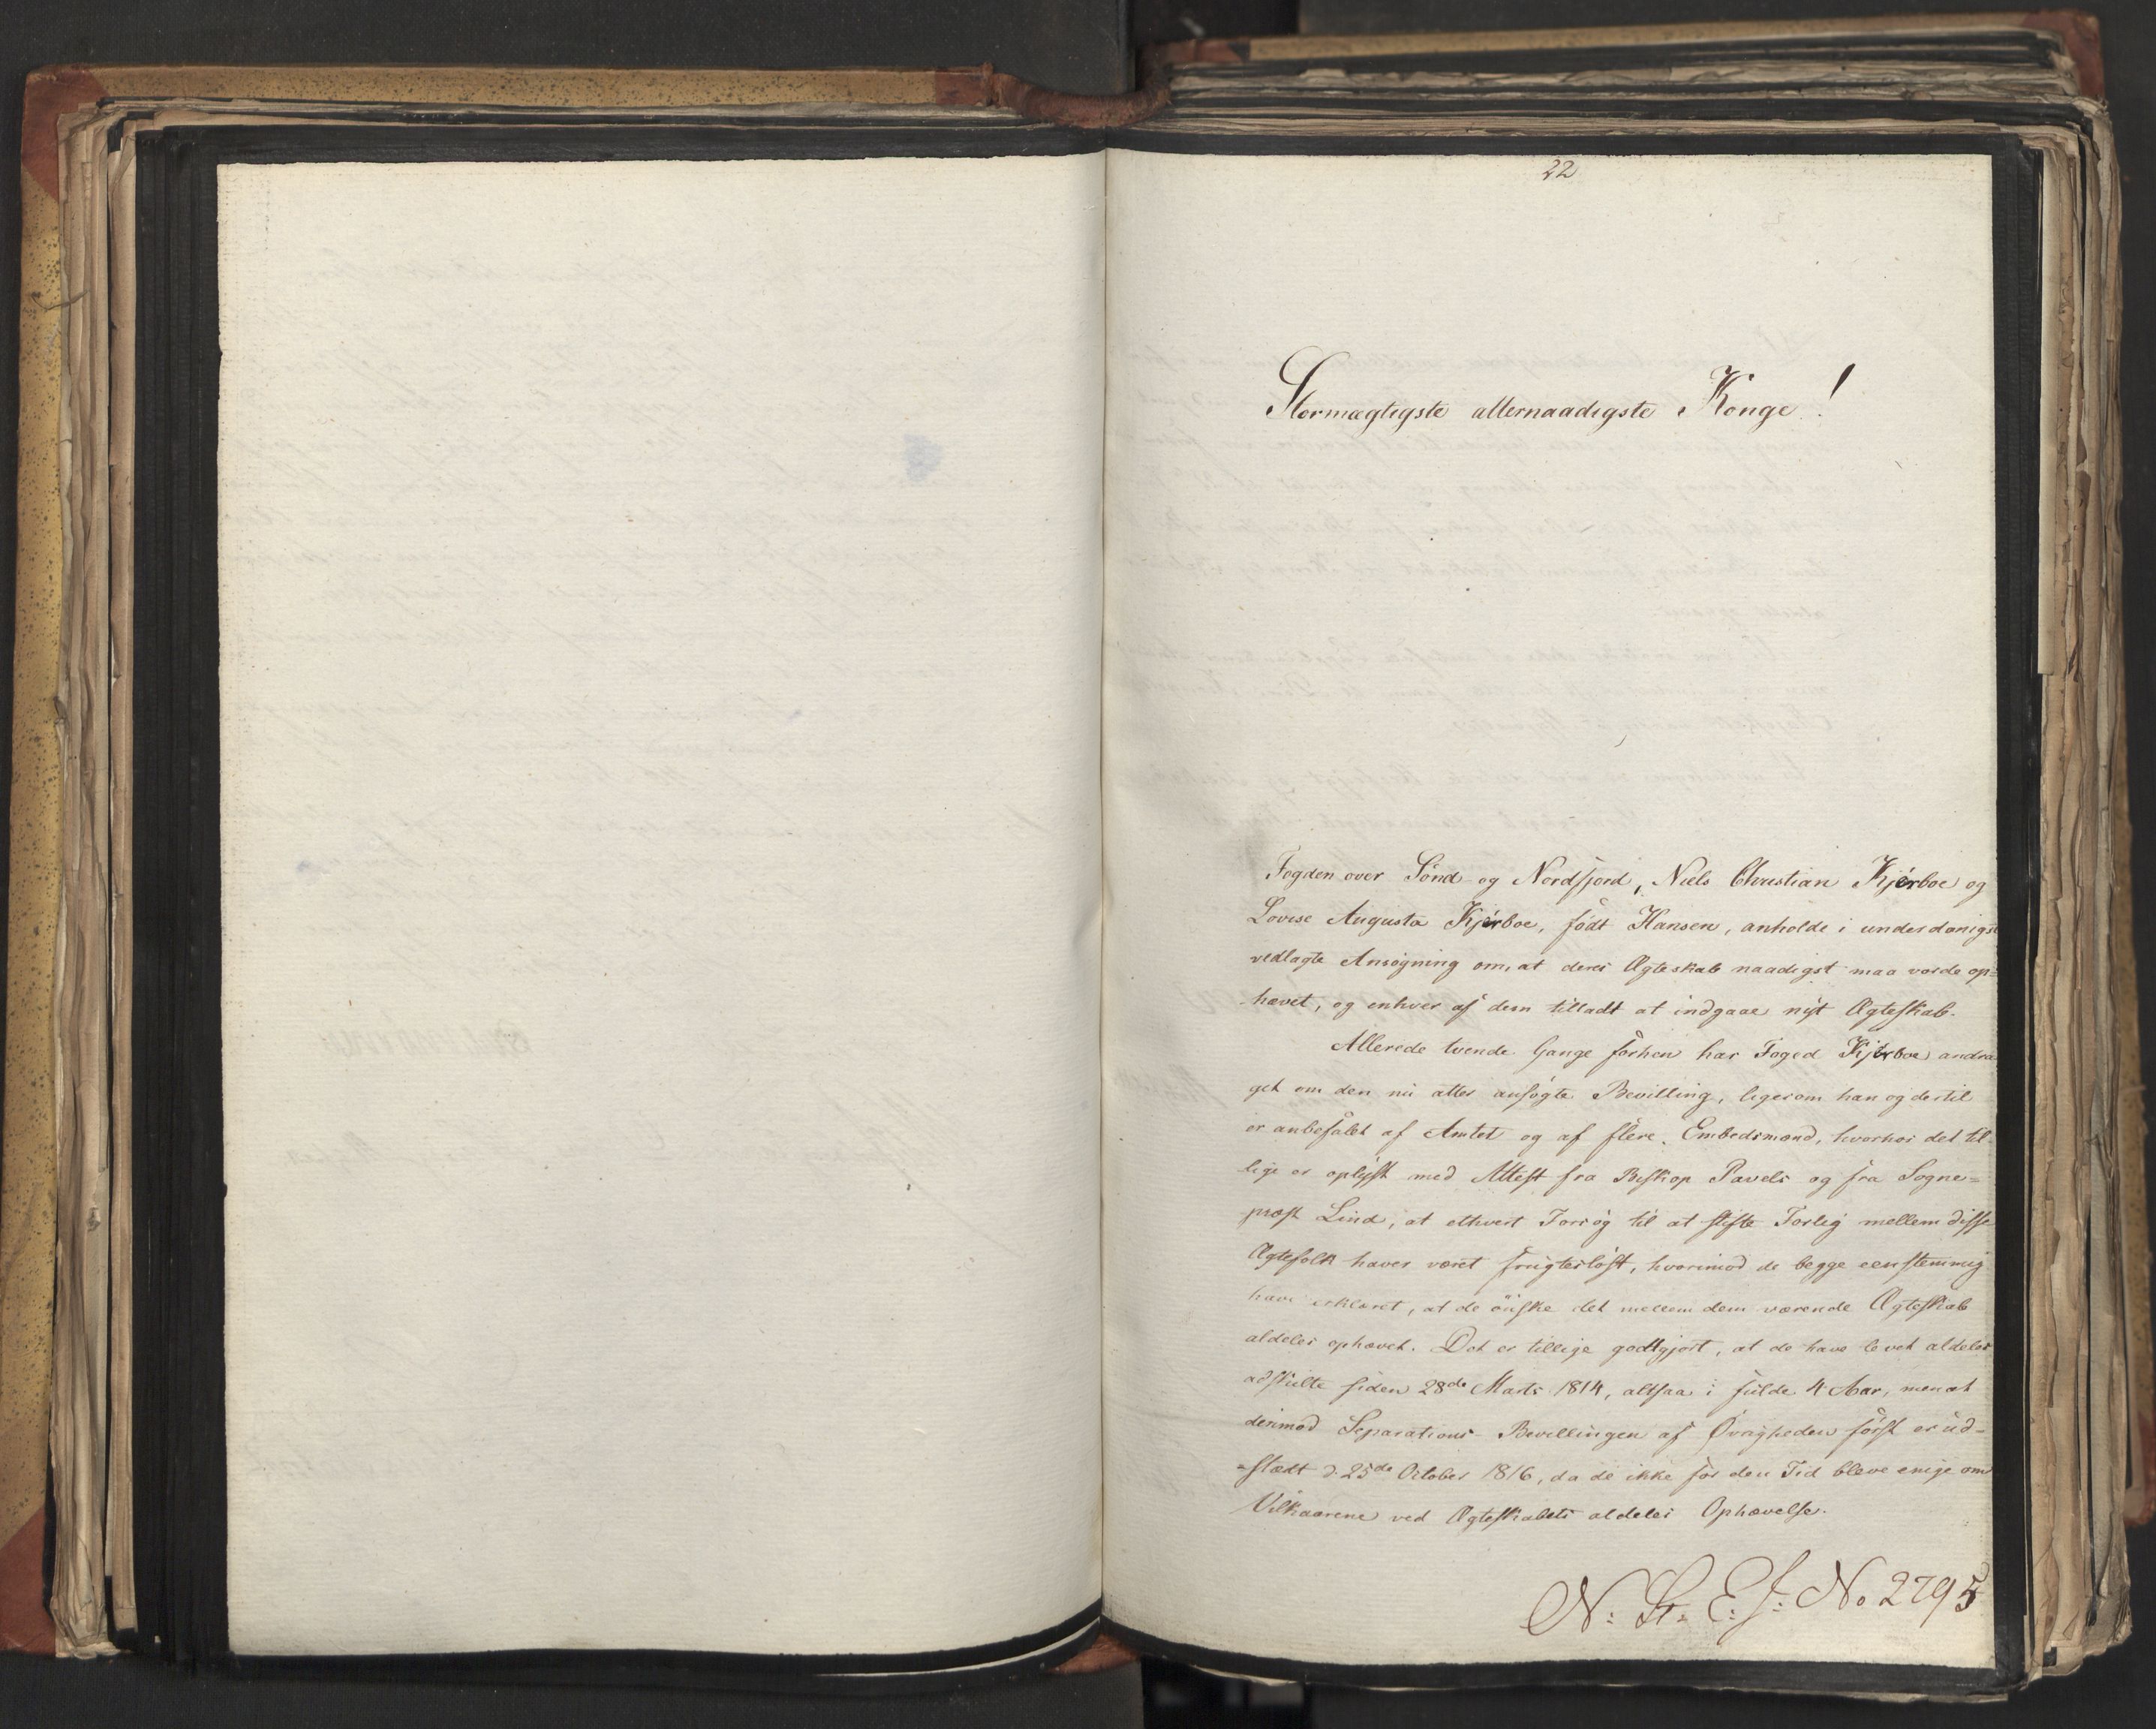 22
Stormægtigste allernaadigste Konge!
Fogden over Sönd- og Nordfjord, Niels Christian Kjérboe og
Lovise Augusta Kjérboe, födt Hansen, anholde i underdanigst
vedlagte Ansögning om, at deres Ægteskab naadigst maa vorde op=
hævet, og enhver af dem tilladt at indgaae nyt Ægteskab.
Allerede tvende Gange forhen har Foged Kjérboe andra
get om den nu atter ansögte Bevilling, ligesom han og dertil
er anbefalet af Amtet og af flere Embedsmænd, hvorhos det til
lige er oplyst med Attest fra Biskop Pavels og fra Sogne=
præst Lind, at ethvert Forsög til at stifte Forlig mellem disse
Ægtefolk haver været frugteslöst, hvorimod de begge eenstemmig
have erklæret, at de önske det mellem dem værende Ægteskab
aldeles ophævet. Det er tillige godtgjort, at de have levet aldeles
adskilte siden 28de Marts 1814, altsaa i fulde 4 Aar, men at
derimod Separations-Bevillingen af Øvrigheden först er ud-
-stædt d. 25de October 1816, da de ikke för den Tid bleve enige om
Vilkaarene ved Ægteskabets aldeles Ophævelse.
N: St: E: J: No 2795